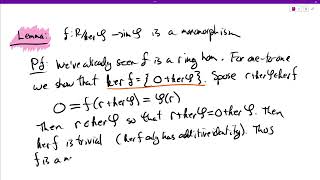 Lemma: f: R/ker φ → im φ is a monomorphism
Pf: We've already seen f is a ring hom. For one-to-one
we show that ker f = {0+ker φ}. Spose r+ker φ ∈ ker f
0 = f(r+ker φ) = φ(r)
Then r ∈ ker φ so that r+ker φ = 0+ker φ. Then
ker f is trivial (ker f only has additive identity). Thus
f is a m